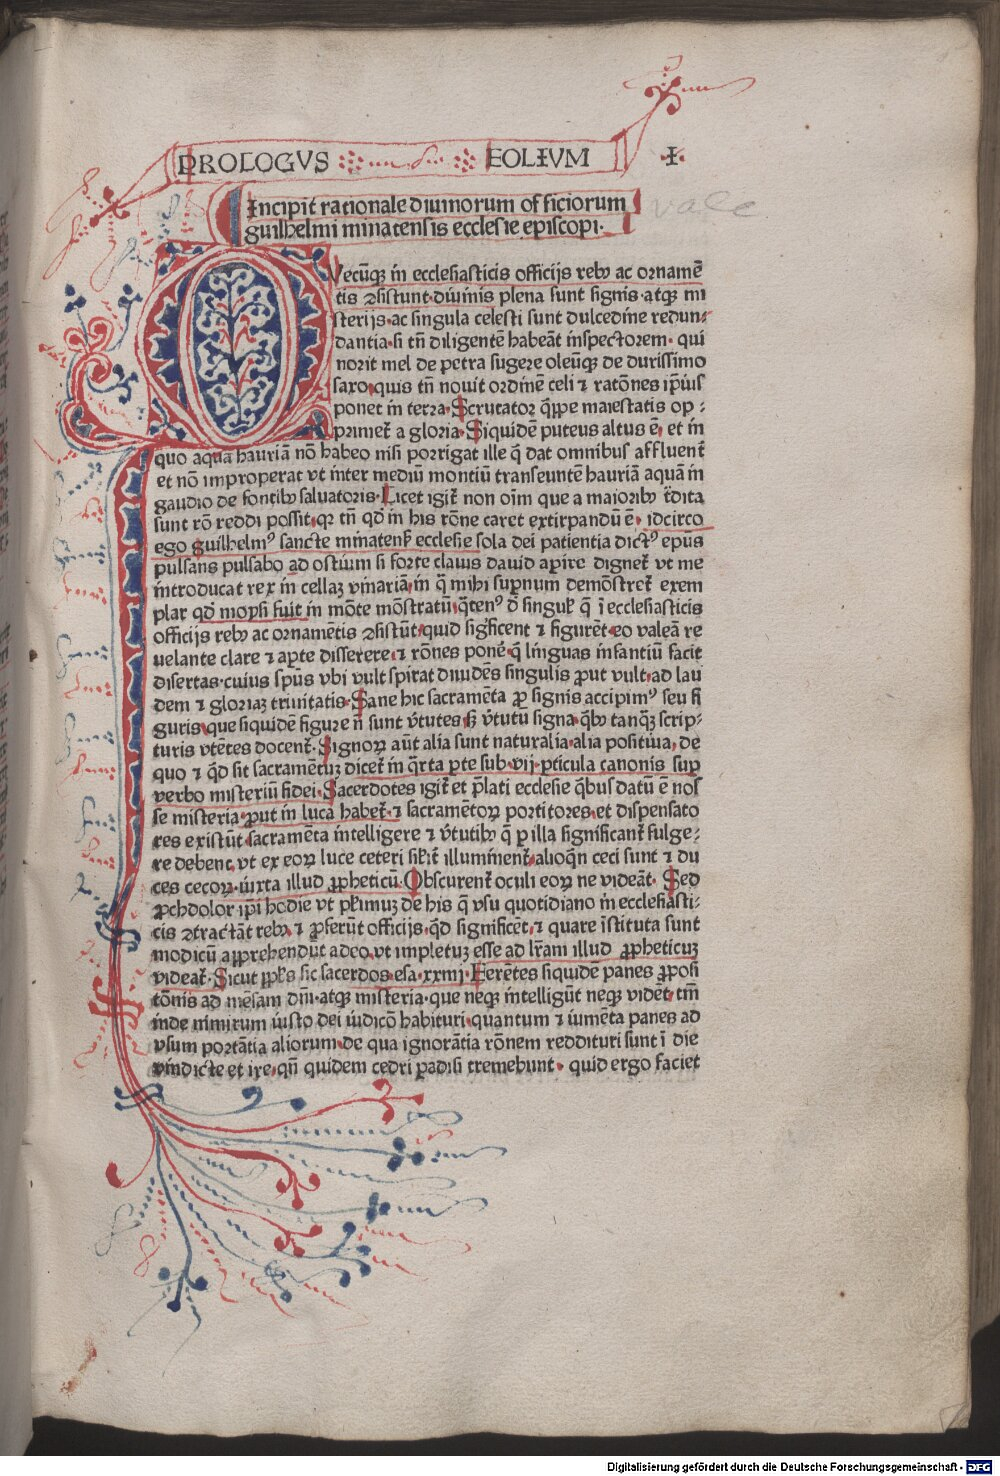 PROLOGVS FOLIVM I
vale
Incipit rationale diuinorum officiorum
guilhelmi minatensis ecclesie episcopi.
Vecūqꝫ in ecclesiasticis officijs rebꝰ ac ornamē
tis ꝯsistunt·diuinis plena sunt signis·atqꝫ mi
sterijs·ac singula celesti sunt dulcedine redun⸗
dantia·si tn̄ diligentē habeāt inspectorem·qui
norit mel de petra sugere oleūqꝫ de durissimo
saxo quis tn̄ nouit ordinē celi ⁊ ratōnes ip̄ius
ponet in terra·Scrutator q̄ppe maiestatis op⸗
primet᷑ a gloria·Siquidē puteus altus ē, et in
quo aquā hauriā nō habeo nisi porrigat ille q̄ dat omnibus affluent᷑
et nō improperat vt inter mediū montiū transeuntē hauriā aquā in
gaudio de fontibꝰ saluatoris·Licet igit᷑ non oīm que a maioribꝰ t̄dita
sunt rō reddi possit·qꝛ tn̄ qd̓ in his rōne caret extirpandū ē·idcirco
ego guilhelmꝰ sancte minateñ ecclesie sola dei patientia dictꝰ ep̄us
pulsans pulsabo ad ostium si forte clauis dauid aꝑire dignet᷑ vt me
introducat rex in cellaꝫ vinariā, in q̄ mihi suꝑnum demōstret᷑ exem
plar qd̓ moysi fuit in mōte mōstratū, q̄tenꝰ d̓ singul̓ q̄ ī ecclesiasticis
officijs rebꝰ ac ornamētis ꝯsistūt, quid sig̓ficent ⁊ figurēt, eo valeā re
uelante clare ⁊ aꝑte disserere, ⁊ rōnes ponē᷑ q̄ linguas infantiū facit
disertas·cuius sp̄us vbi vult spirat diuidēs singulis ꝓut vult, ad lau
dem ⁊ gloriaꝫ trinitatis·Sane hic sacramēta ꝓ signis accipimꝰ seu fi
guris, que siquidē figure n̄ sunt v̄tutes, sꝫ v̄tutū signa, q̄bꝰ tanq̄ꝫ scrip⸗
turis vtētes docent᷑·Signoꝝ aūt alia sunt naturalia, alia positiua, de
quo ⁊ q̄d sit sacramētuꝫ dicet᷑ in q̄rta ꝑte sub·vij·ꝑticula canonis suꝑ
verbo misteriū fidei·Sacerdotes igit᷑ et p̄lati ecclesie q̄bus datū ē nos
se misteria, ꝓut in luca habet᷑·⁊ sacramētoꝝ portitores, et dispensato
res existūt, sacramēta intelligere ⁊ v̄tutibꝰ q̄ ꝑ illa significant᷑ fulge⸗
re debent, vt ex eoꝝ luce ceteri sil̓it᷑ illuminent᷑, alioq̄n ceci sunt ⁊ du
ces cecoꝝ·iuxta illud ꝓpheticū·Obscurent᷑ oculi eoꝝ ne videāt·Sed
ꝓchdolor ip̄i hodie vt pl̓imuꝫ de his q̄ vsu quotidiano in ecclesiasti⸗
cis ꝯtractāt rebꝰ, ⁊ ꝓferūt officijs, q̄d significēt, ⁊ quare īstituta sunt
modicū apprehendūt adeo, vt impletuꝫ esse ad lr̄am illud ꝓpheticuꝫ
videat᷑·Sicut ppl̓s sic sacerdos·esa·xxiiij·Ferētes siquidē panes ꝓposi
tōnis ad mēsam dn̄i·atqꝫ misteria·que neqꝫ intelligūt neqꝫ vidēt, tn̄
inde nimirum iusto dei iudicō habituri·quantum ⁊ iumēta panes ad
vsum portātia aliorum·de qua ignorātia rōnem reddituri sunt ī die
vindicte et ire, qn̄ quidem cedri ꝑadisi tremebunt·quid ergo faciet
Digitalisierung gefördert durch die Deutsche Forschungsgemeinschaft - DFG